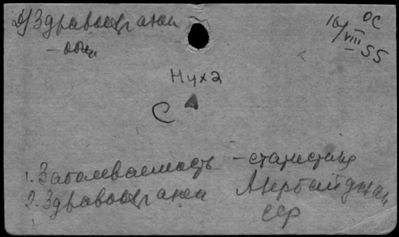 2) Здравоохранен
ОС
- общ
16/VIII 55
Нуха
С
1. Заболеваемость - статистика
2. Здравоохранен Азербайджан
ССР